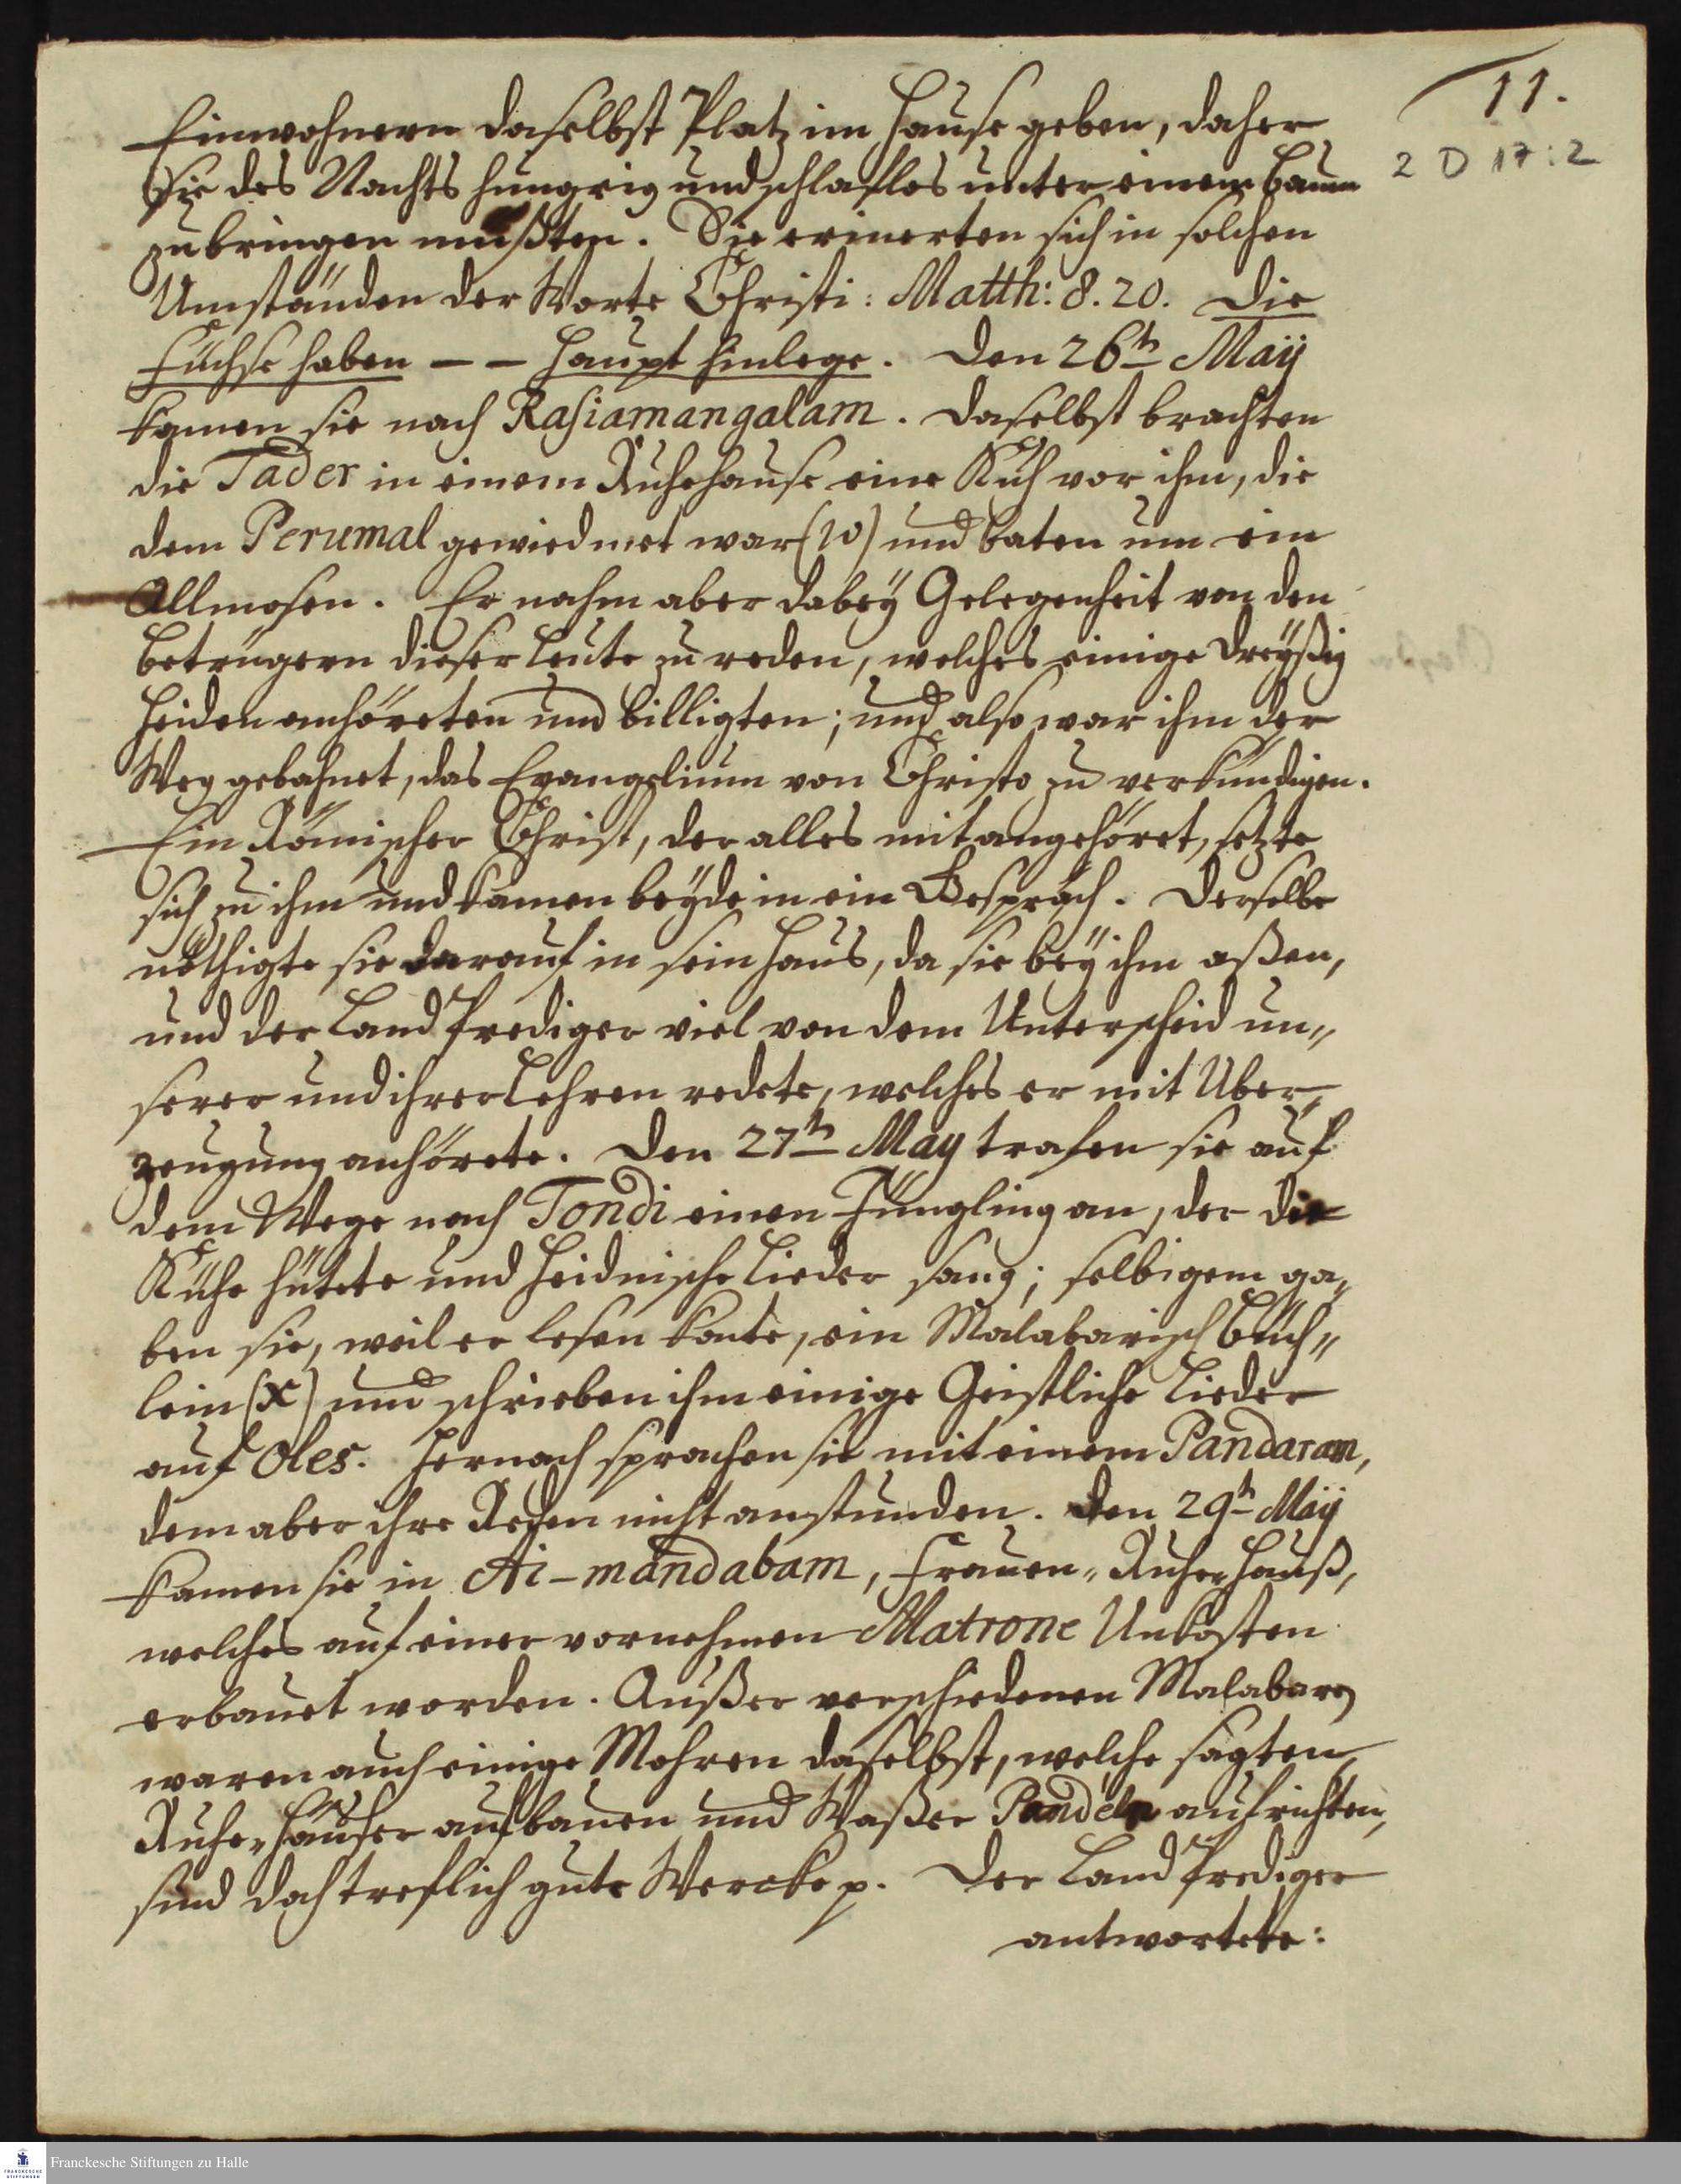 11.
2 D 17:2
Einwohnern daselbst Platz im Hause geben, daher
sie des Nachts hungrig und schlaflos unter einem Baum
zubringen mußten. Sie erinerten sich in solchen
Umständen der Worte Christi: Matth: 8. 20. Die
Füchse haben – – Haupt hinlege. Den 26th Maÿ
kamen sie nach Rasiamangalam. Daselbst brachten
die Tader in einem Ruhehause eine Kuh vor ihm, die
dem Perumal gewiedmet war (w) und baten um ein
Allmosen. Er nahm aber dabeÿ Gelegenheit von den
Betrügern dieser Leute zu reden, welches einige dreÿßig
Heiden anhöreten und billigten; und also war ihm der
Weg gebahnet, das Evangelium von Christo zu verkündigen.
Ein Römischer Christ, der alles mit angehöret, setzte
sich zu ihm und kamen beÿde in ein Gespräch. Derselbe
nöthigte sie darauf in sein Haus, da sie beÿ ihm aßen,
und der Land Prediger viel von dem Unterscheid un„
serer und ihrer Lehren redete, welches er mit Uber„
zeugung anhörete. Den 27th May trafen sie auf
dem Wege nach Tondi einen Jüngling an, der die
Kühe hütete und Heidnische Lieder sang; selbigem ga„
ben sie, weil er lesen konte, ein Malabarisch Büch„
lein (x) und schrieben ihm einige Geistliche Lieder
auf Oles. Hernach sprachen sie mit einem Pandaram,
dem aber ihre Reden nicht anstunden. Den 29th Maÿ
kamen sie in Ai-mandabam, Frauen„Ruhe„Hauß,
welches auf einer vornehmen Matrone Unkosten
erbauet worden. Außer verschiedenen Malabaren
waren auch einige Mohren daselbst, welche sagten,
Ruhe„Häuser aufbauen und Waßer Pandeln aufrichten,
sind doch treflich gute Wercke p. Der Land Prediger
antwortete:
Franckesche Stiftungen zu Halle
FRANCKESCHE
STIFTUNGEN